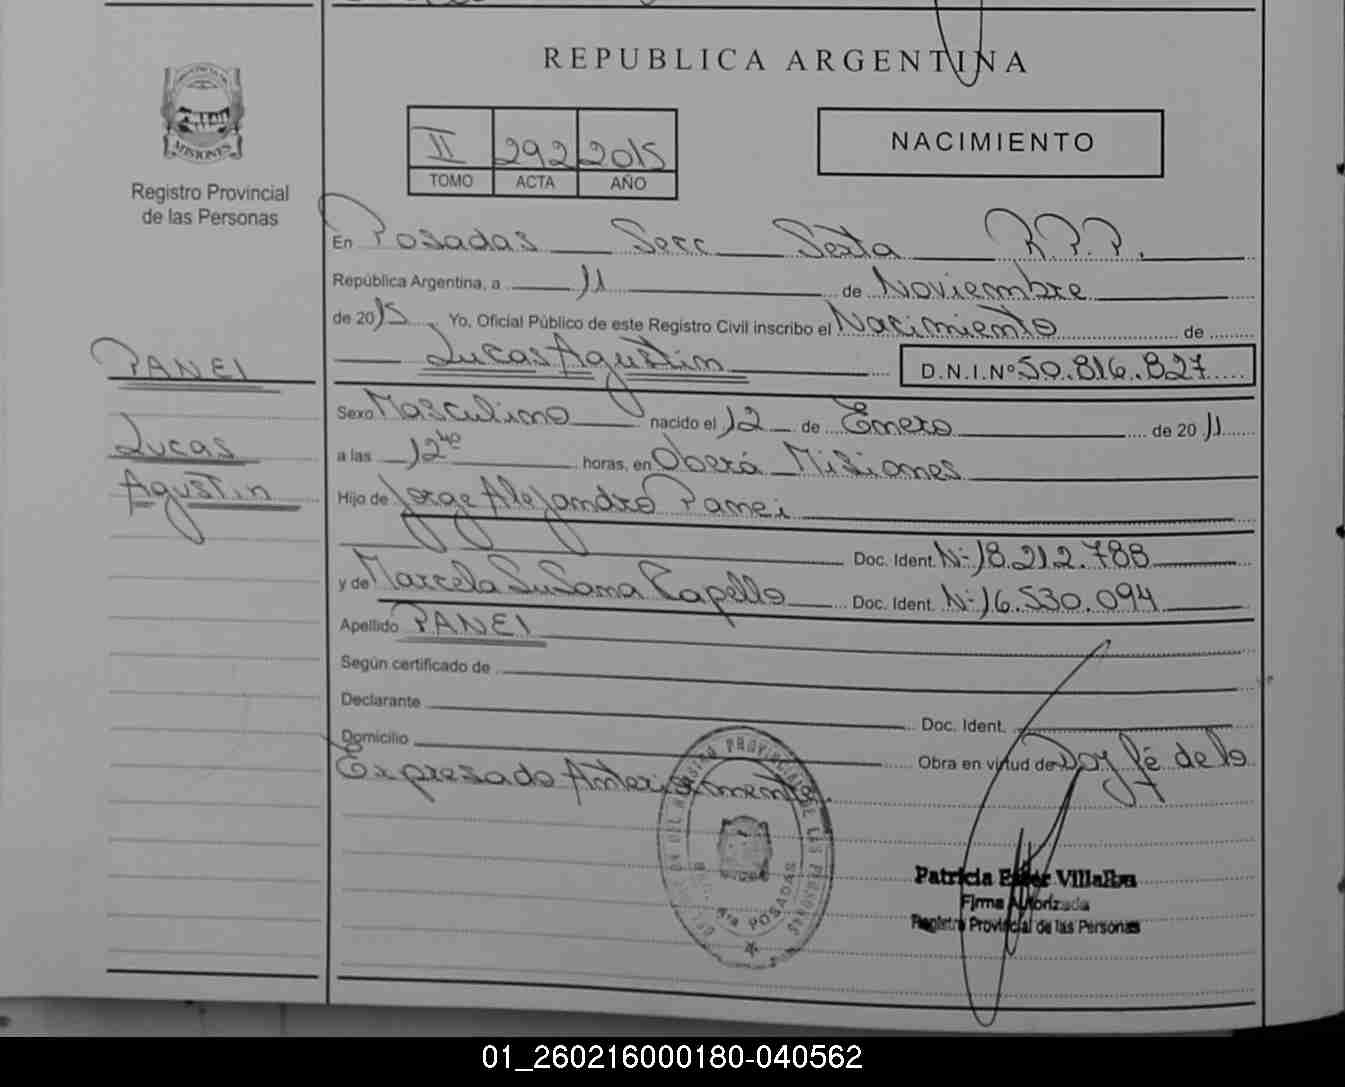 REPUBLICA ARGENTINA
MISIONES
Registro Provincial
de las Personas
II 292 2015
TOMO ACTA AÑO
NACIMIENTO
En Posadas Secc Sexta R.P.P.
República Argentina, a 11 de Noviembre
de 2015 Yo, Oficial Público de este Registro Civil inscribo el Nacimiento de
Lucas Agustin D.N.I.Nº 50.816.827
PANEI
Lucas
Agustin
Sexo Masculino nacido el 12 de Enero de 2011
a las 12 40 horas, en Oberá Misiones
Hijo de Jorge Alejandro Panei
Doc. Ident. Nº 18.212.788
y de Marcela Susana Capello Doc. Ident. Nº 16.530.094
Apellido PANEI
Según certificado de
Declarante Doc. Ident.
Domicilio Obra en virtud de Doy fé de lo
Expresado Anteriormente.
POSADAS
Patricia Ester Villalba
Firma Autorizada
Registro Provincial de las Personas
01_260216000180-040562